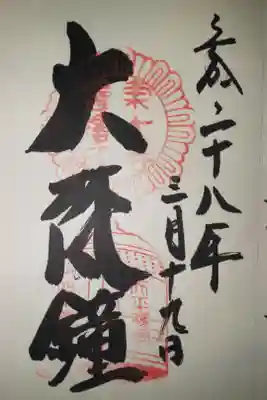 平成二十八年
三月十九日
大梵鐘